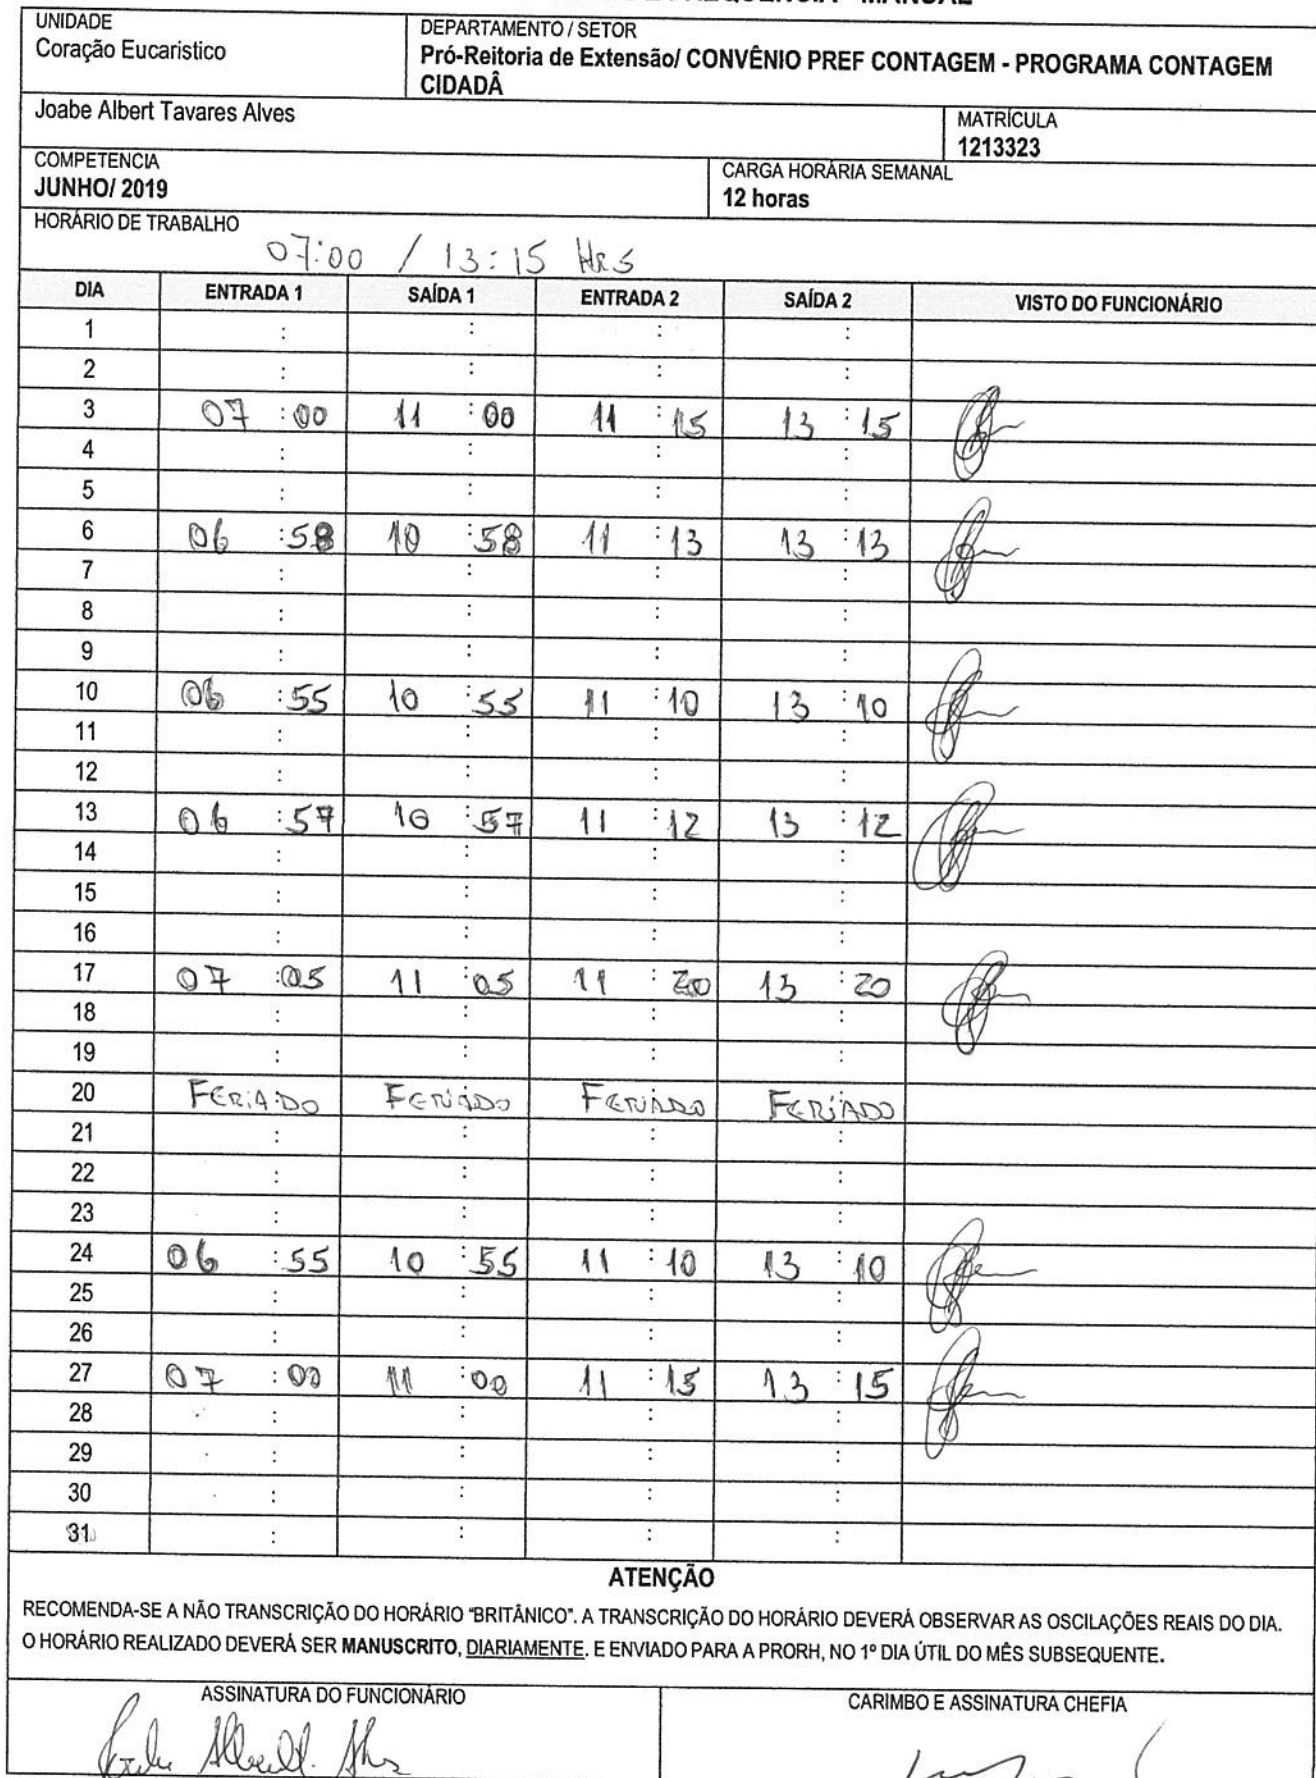 UNIDADE
Coração Eucaristico
DEPARTAMENTO / SETOR
Pró-Reitoria de Extensão/ CONVÊNIO PREF CONTAGEM - PROGRAMA CONTAGEM
CIDADÂ
Joabe Albert Tavares Alves
MATRÍCULA
1213323
COMPETENCIA
JUNHO/ 2019
CARGA HORÁRIA SEMANAL
12 horas
HORÁRIO DE TRABALHO
07:00 / 13:15 HRS
DIA ENTRADA 1 SAÍDA 1 ENTRADA 2 SAÍDA 2 VISTO DO FUNCIONÁRIO
1 : : : :
2 : : : :
3 07 :00 11 :00 11 :15 13 :15
4 : : : :
5 : : : :
6 06 :58 10 :58 11 :13 13 :13
7 : : : :
8 : : : :
9 : : : :
10 06 :55 10 :55 11 :10 13 :10
11 : : : :
12 : : : :
13 06 :57 10 :57 11 :12 13 :12
14 : : : :
15 : : : :
16 : : : :
17 07 :05 11 :05 11 :20 13 :20
18 : : : :
19 : : : :
20 FERIADO FERIADO FERIADO FERIADO
21 : : : :
22 : : : :
23 : : : :
24 06 :55 10 :55 11 :10 13 :10
25 : : : :
26 : : : :
27 07 :00 11 :00 11 :15 13 :15
28 : : : :
29 : : : :
30 : : : :
31 : : : :
ATENÇÃO
RECOMENDA-SE A NÃO TRANSCRIÇÃO DO HORÁRIO "BRITÂNICO". A TRANSCRIÇÃO DO HORÁRIO DEVERÁ OBSERVAR AS OSCILAÇÕES REAIS DO DIA.
O HORÁRIO REALIZADO DEVERÁ SER MANUSCRITO, DIARIAMENTE. E ENVIADO PARA A PRORH, NO 1º DIA ÚTIL DO MÊS SUBSEQUENTE.
ASSINATURA DO FUNCIONÁRIO
CARIMBO E ASSINATURA CHEFIA